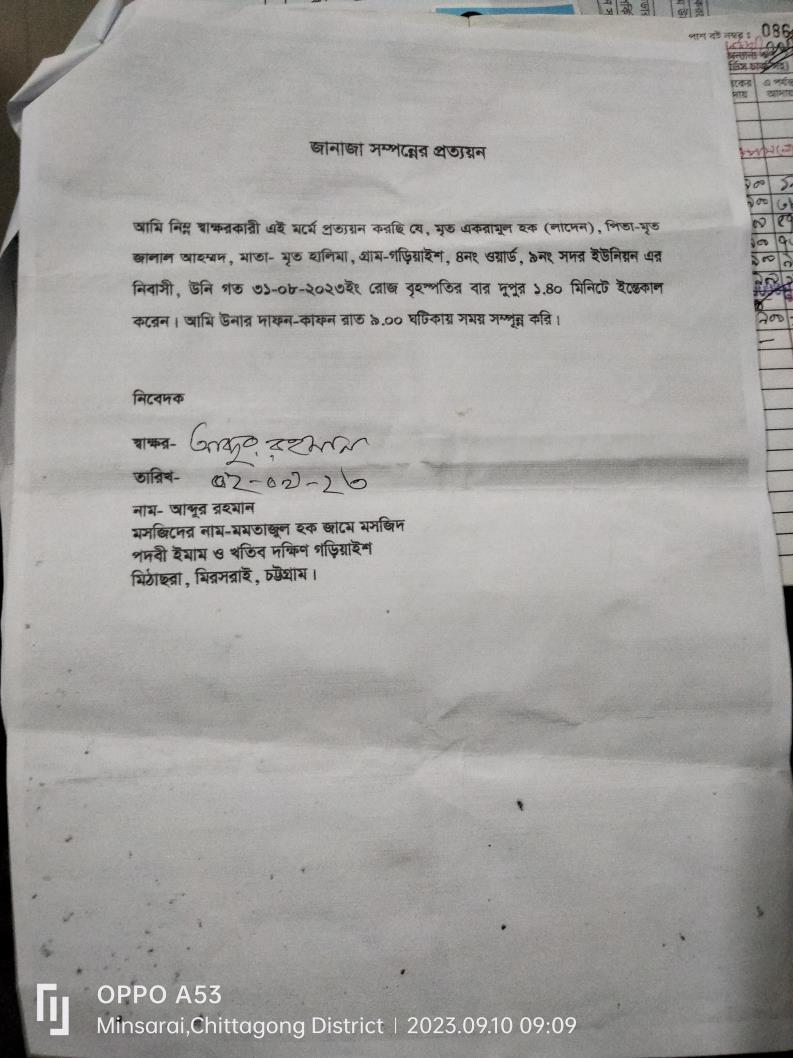 পাশ বই নম্বর : 086
জানাজা সম্পন্নের প্রত্যয়ন
আমি নিম্ন স্বাক্ষরকারী এই মর্মে প্রত্যয়ন করছি যে, মৃত একরামুল হক (লাদেন), পিতা-মৃত
জালাল আহম্মদ, মাতা- মৃত হালিমা, গ্রাম-গড়িয়াইশ, ৪নং ওয়ার্ড, ৯নং সদর ইউনিয়ন এর
নিবাসী, উনি গত ৩১-০৮-২০২৩ইং রোজ বৃহস্পতির বার দুপুর ১.৪০ মিনিটে ইন্তেকাল
করেন। আমি উনার দাফন-কাফন রাত ৯.০০ ঘটিকায় সময় সম্পুন্ন করি।
নিবেদক
স্বাক্ষর-
তারিখ- ০২-০৯-২৩
নাম- আব্দুর রহমান
মসজিদের নাম-মমতাজুল হক জামে মসজিদ
পদবী ইমাম ও খতিব দক্ষিণ গড়িয়াইশ
মিঠাছরা, মিরসরাই, চট্টগ্রাম।
OPPO A53
Minsarai,Chittagong District | 2023.09.10 09:09